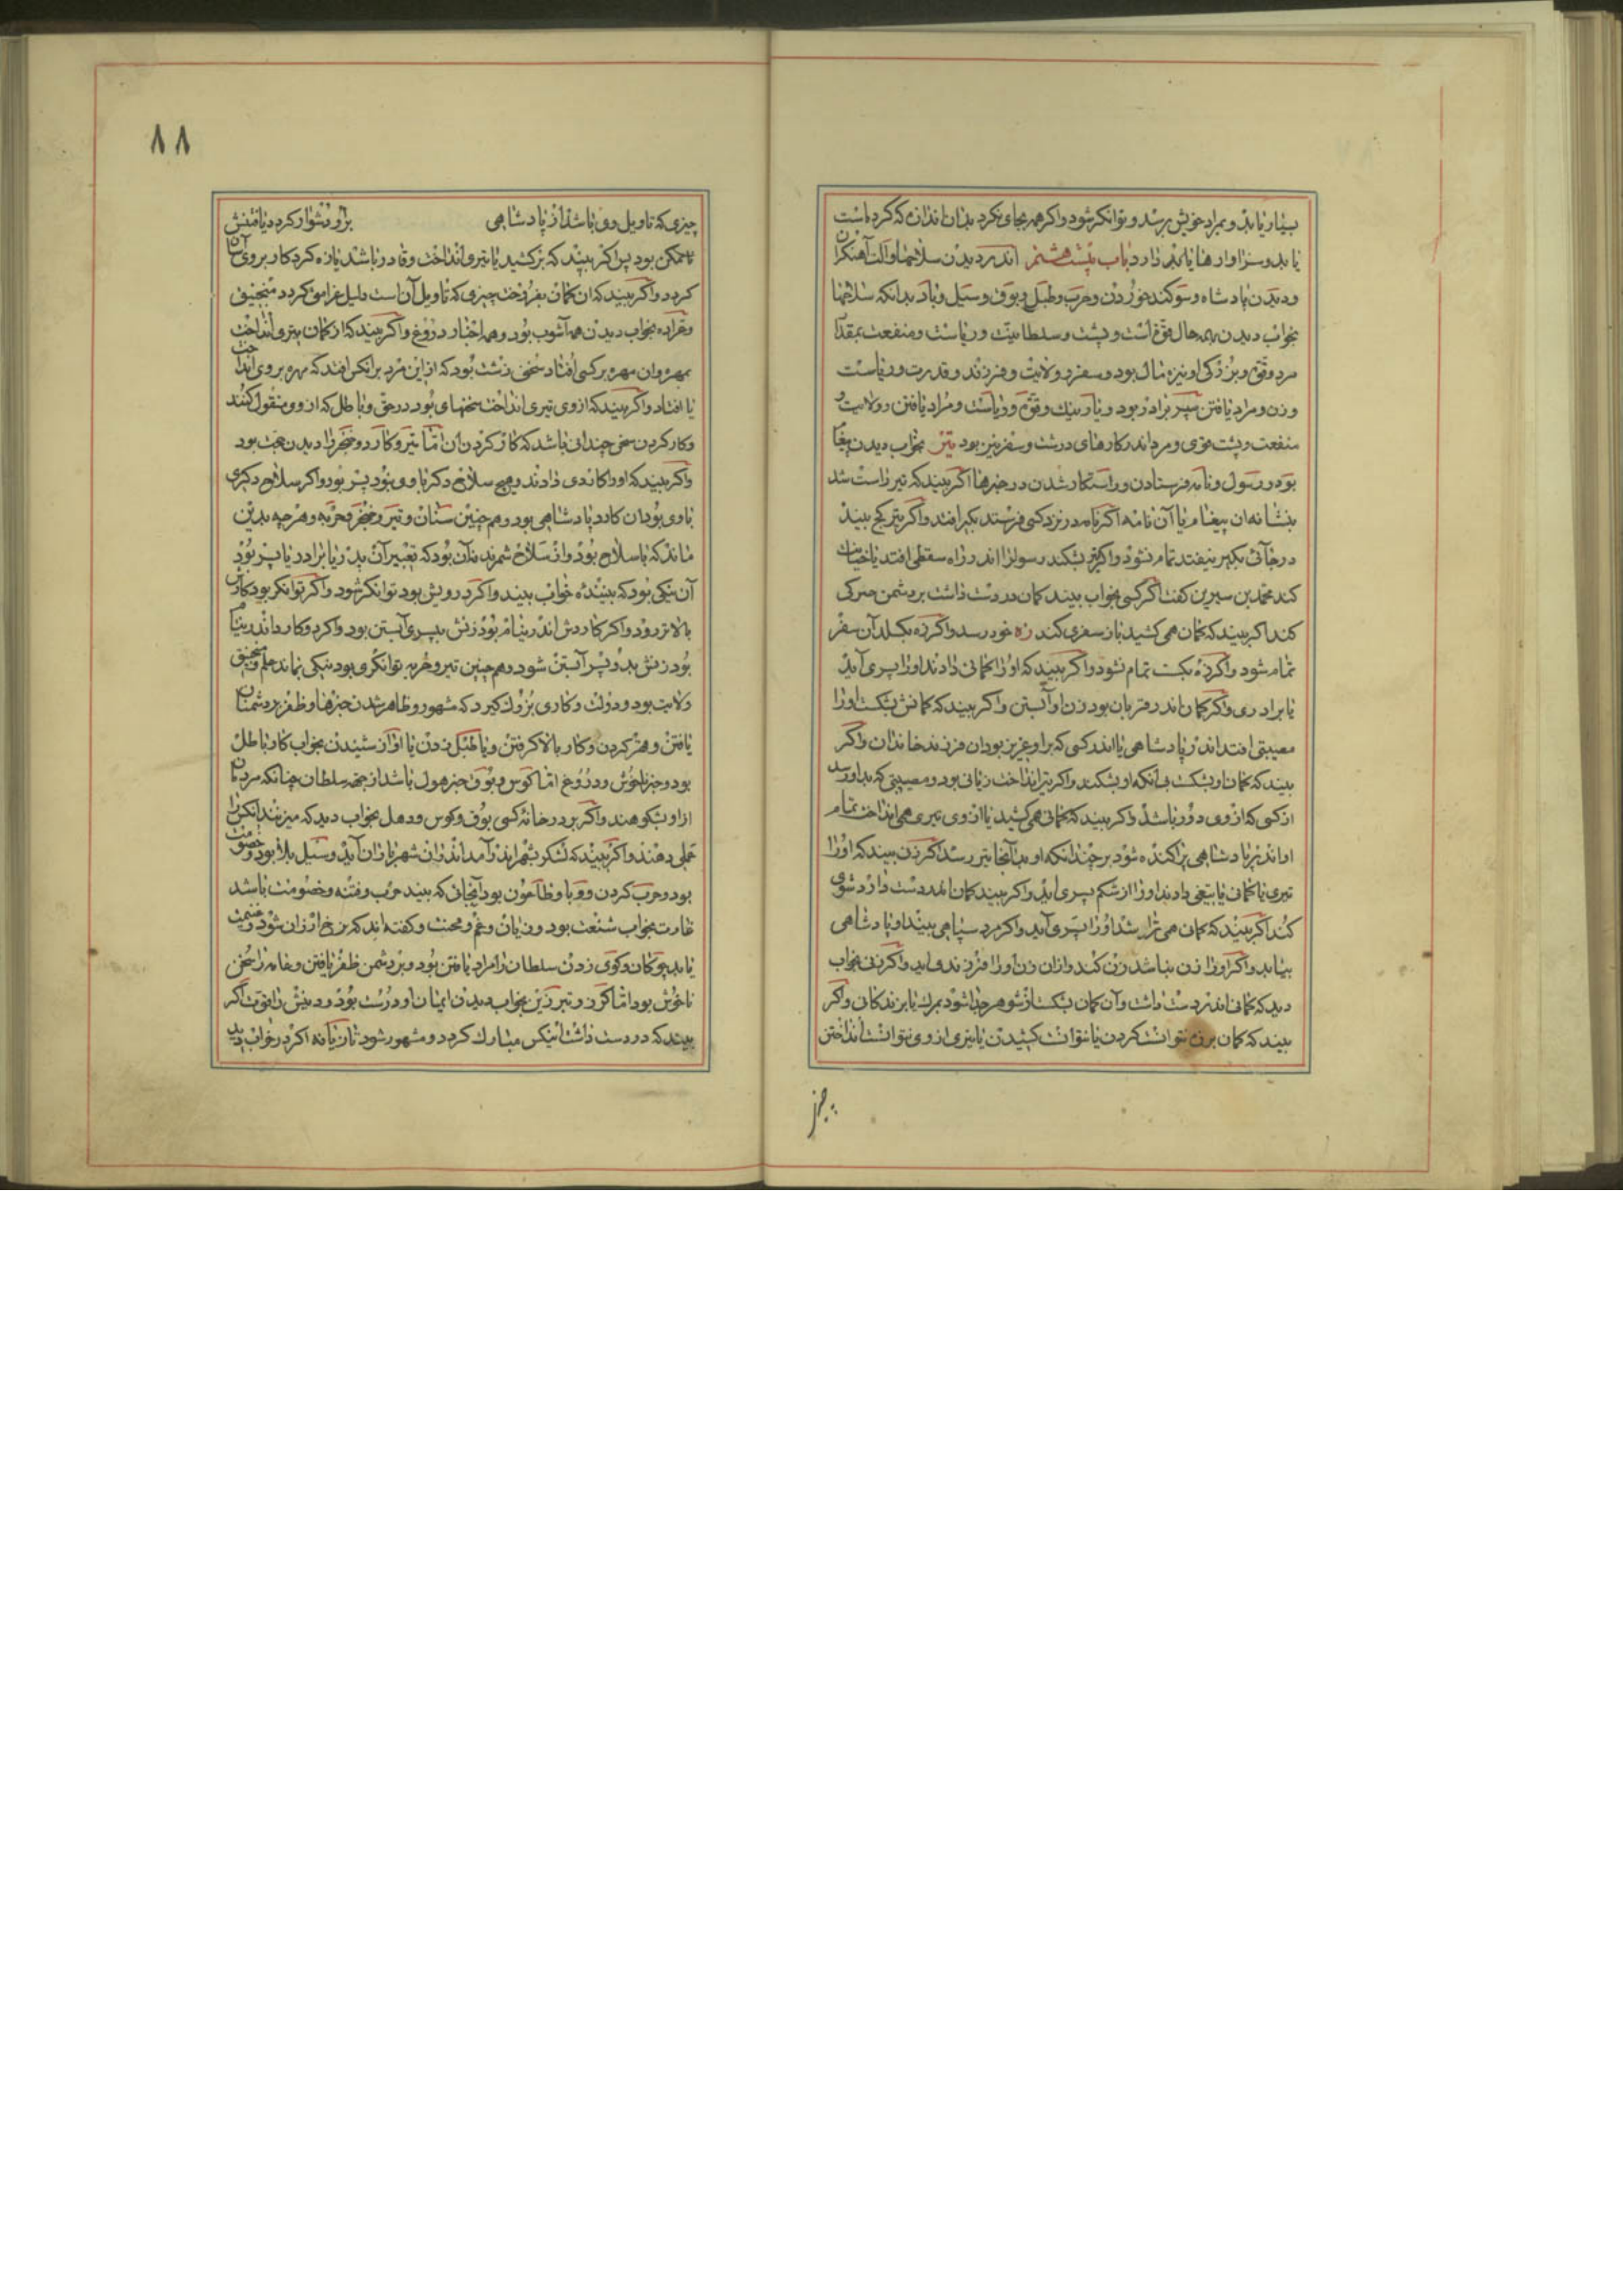 بسیار یابد و بمراد خویش برسد و توانکر شود واکر همه بجای نکرد بدان اندازه که کرده است
یابد و سزاوار هایابد دارد باب بیست هشتم اندر دیدن سلاحها وآلت آهنکران
ودیدن پادشاه وسوکند خوردن وحرب وطبل وبوق وسیل وباد بدانکه سلاحها
بخواب دیدن بهمه حال قوّة است وپشت وسلطانیّت وریاست ومنفعت بمقدار
مرد وقوّة وبزرکی او نیزه مال بود وسفر وولایت وفرزند وقدرت وریاست
وزن ومراد یافتن سپر برادر بود ویار نیك وقوّة وریاست ومراد یافتن وولایت و
منفعت وپشت قوی ومرد اندر کارهای درشت وسفر نیز بود تیر بخواب دیدن پیغام
بود ورسول ونامه فرستادن وراستکار شدن در خبرها اکر بیند که تیر راست شد
بنشانه آن پیغام یا آن نامه اکر نامه در نزد کسی فرستد بکبر افتد واکر تیر کج بیند
در جائی بکبر نیفتد تمام نشود واکر تیر بشکند رسول را اندر راه سقطی افتد یا خیانت
کند محمّد بن سیرین کفت اکر کسی بخواب بیند کمان در دست داشت بر دشمن
کند اکر بیند که کمان همی کشید باز سفری کند زه خود رسد واکر زه بکسلد آن سفر
تمام شود واکر زه بکست تمام نشود واکر بیند که او را کمانی دادند او را پسری آید
یا برادری واکر کمان اندر قربان بود زن او آبستن واکر بیند که کمانش بشکست او را
مصیبتی افتد اندر پادشاهی یا اندر کسی که بر او عزیز بود از فرزند خاندان واکر
بیند که کمان او بشکست بی آنکه او بشکند واکر تیر انداخت زیانی بود ومصیبتی که بدو رسد
از کسی که از وی دور باشد واکر بیند که کمانی همی کشید یا از وی تیری همی انداخت تمام
او اندر پادشاهی پراکنده شود بر چندانکه او بدآنجا تیر رسد اکر زن بیند که او را
تیری یا کمانی یا تیغی دادند او را از شکم پسری آید واکر بیند کمان اندر دست دارد شوی
کند اکر بیند که کمان همی تراشد او را پسری آید واکر مرد سپاهی بیند او پادشاهی
بیابد واکر او را زن نباشد زن کند واز آن زن او را فرزند آید واکر زنی بخواب
دید که کمانی اندر دست داشت وآن کمان بشکست از شوهر جدا شود بمرك یا بزندکانی واکر
بیند که کمان بزه نتوانست کردن یا نتوانست کشیدن یا تیری از وی نتوانست انداختن
۸۸
چیزی که تاویل وی باشد از پادشاهی بر او دشوار کردد یافتنش
ناممکن بود پس اکر بیند که بر کشید یا تیر وانداخت وقادر باشد یا زه کرد کار بر وی آسان
کردد واکر بیند که از کمان بفروخت چیزی که تاویل آن است دلیل فراموش کردد منجنیق
وعرّاده بخواب دیدن همه آشوب بود وهمه اخبار دروغ واکر بیند که از کمان تیری انداخت
بمهره وآن مهره بر کسی افتاد سخنی زشت بود که از این مرد بر آنکس افتد که مهره بر وی انداخت
یا افتاد واکر بیند که از وی تیری انداخت سخنهای بود در حق وباطل که از وی منقول کنند
وکار کردن سخن چندانی باشد که کار کردن آن امّا تیر وکارد وخنجر را دیدن حجّت بود
واکر بیند که او را کاردی دادند وهیچ سلاح دکر با وی نبود پسر بود واکر سلاح دکری
با وی بود آن کارد پادشاهی بود وهم چنین سنان وتیر وخنجر وحربه وهر چه بدین
ماند که با سلاح بود واز سلاح شمرند بدآن بود که تعبیر آن پدر یا برادر یا پسر بود
آن نیکی بود که بیننده خواب بیند واکر درویش بود توانکر شود واکر توانکر بود کارش
بالاتر رود واکر کاردش اندر نیام بود زنش بپسری آبستن بود واکر دو کارد اندر نیام
بود زنش بدو پسر آبستن شود وهم چنین تیر وحربه توانکری بود نیکی نماند علم وسنجق
ولایت بود ودولت وکاری بزرك کیرد که مشهور وظاهر شدن خبرها وظفر بر دشمنان
یافتن وهنر کردن وکار بالا کرفتن ویا طبل زدن یا آواز شنیدن بخواب کار باطل
بود وخبر ناخوش ودروغ امّا کوس وبوق خبر هول باشد از جهة سلطان چنانکه مردمان
از او شکوهند واکر بر در خانه کسی بوق وکوس ودهل بخواب دید که میزنند آنکس را
عملی دهند واکر بیند که لشکر بشهر اندر آمد اندر آن شهر باران آید وسیل بلا بود وخصومت
بود وحرب کردن ووبا وطاعون بود آنجائی که بیند حرب وفتنه وخصومت باشد
غارت بخواب شنعت بود وزیان وغم ومحنت وکفته اند که نرخ ارزان شود وغنیمت
یابد چوکان وکوی زدن سلطان را مراد یافتن بود وبر دشمن ظفر یافتن وعامه را سخن
ناخوش بود امّا کرز وتبرزین بخواب دیدن ایمان او درست بود ودینش را قوّت اکر
بیند که در دست داشت آنکس مبارك کردد ومشهور شود تازیانه اکر در خواب بیند